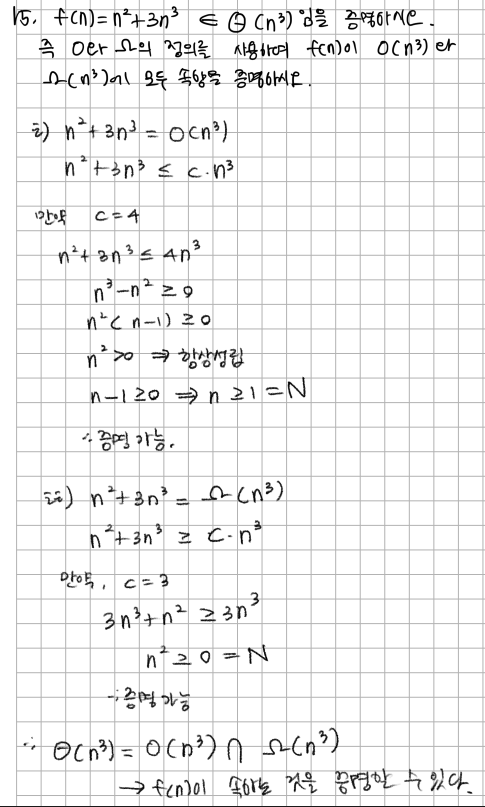 15. f(n)=n²+3n³ ∈ Θ(n³)임을 증명하시오.
즉 O와 Ω의 정의를 사용하여 f(n)이 O(n³)와
Ω(n³)에 모두 속함을 증명하시오.
i) n²+3n³ = O(n³)
n²+3n³ ≤ c·n³
만약 c=4
n²+3n³ ≤ 4n³
n³-n² ≥ 0
n²(n-1) ≥ 0
n²>0 ⇒ 항상성립
n-1≥0 ⇒ n≥1=N
∴ 증명가능.
ii) n²+3n³ = Ω(n³)
n²+3n³ ≥ C·n³
만약, c=3
3n³+n² ≥ 3n³
n² ≥ 0 = N
∴ 증명가능
∴ Θ(n³) = O(n³) ∩ Ω(n³)
→ f(n)이 속하는 것을 증명할 수 있다.